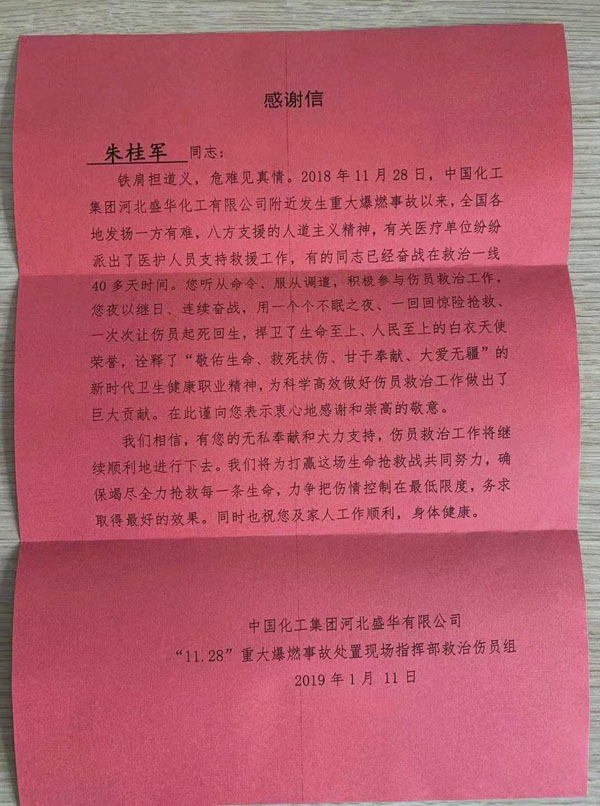 感谢信
朱桂军 同志：
铁肩担道义，危难见真情。2018年11月28日，中国化工
集团河北盛华化工有限公司附近发生重大爆燃事故以来，全国各
地发扬一方有难，八方支援的人道主义精神，有关医疗单位纷纷
派出了医护人员支持救援工作，有的同志已经奋战在救治一线
40多天时间。您听从命令、服从调遣，积极参与伤员救治工作，
您夜以继日、连续奋战，用一个个不眠之夜、一回回惊险抢救、
一次次让伤员起死回生，捍卫了生命至上、人民至上的白衣天使
荣誉，诠释了“敬佑生命、救死扶伤、甘于奉献、大爱无疆”的
新时代卫生健康职业精神，为科学高效做好伤员救治工作做出了
巨大贡献。在此谨向您表示衷心地感谢和崇高的敬意。
我们相信，有您的无私奉献和大力支持，伤员救治工作将继
续顺利地进行下去。我们将为打赢这场生命抢救战共同努力，确
保竭尽全力抢救每一条生命，力争把伤情控制在最低限度，务求
取得最好的效果。同时也祝您及家人工作顺利，身体健康。
中国化工集团河北盛华有限公司
“11.28”重大爆燃事故处置现场指挥部救治伤员组
2019年1月11日